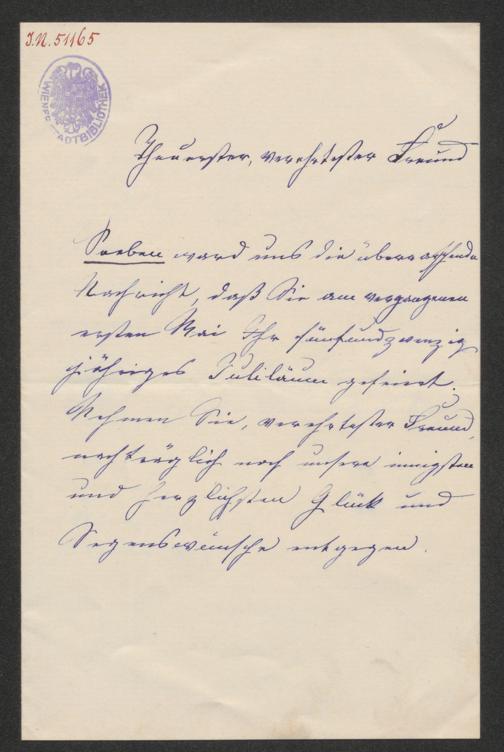 J.N. 51165
WIENER STADTBIBLIOTHEK
Theuerster, verehrtester Freund
Soeben ward uns die überraschende
Nachricht, daß Sie am vergangenen
ersten Mai Ihr fünfundzwanzig
jähriges Jubiläum gefeiert.
Nehmen Sie, verehrtester Freund,
nachträglich noch unsere innigsten
und herzlichsten Glück und
Segenswünsche entgegen.